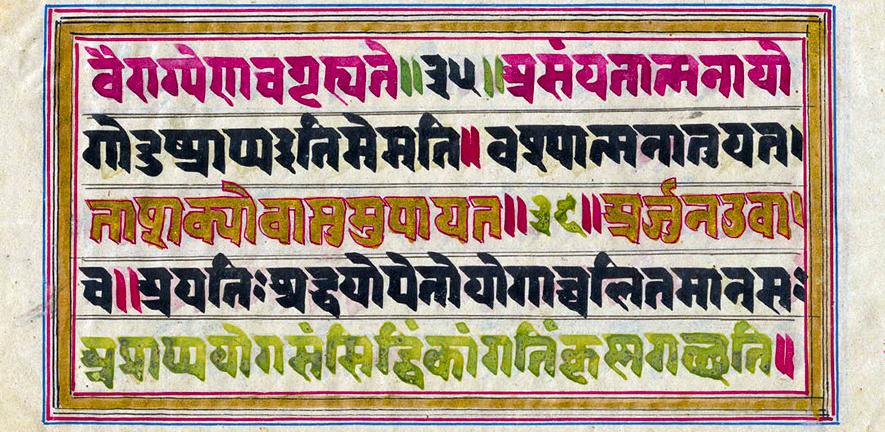 वैराग्येणचगृह्यते॥३५॥असंयतात्मनायो
गोदुष्प्राप्यइतिमेमति॥वश्यात्मनातुयत।
ताशक्योवाप्तुमुपायत॥३६॥अर्जुनउवा।
च॥अयतिःश्रद्धयोपेतोयोगाच्चलितमानसः
अप्राप्ययोगसंसिद्धिंकांगतिंकृष्णगच्छति॥